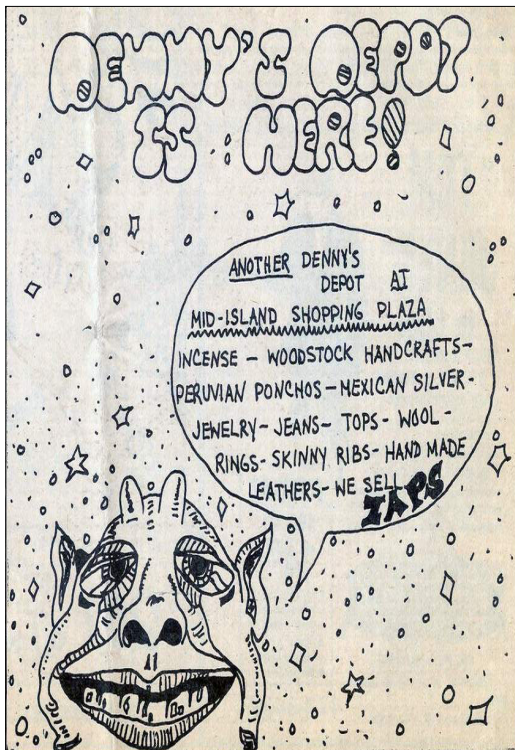 DENNY'S DEPOT
IS HERE!
ANOTHER DENNY'S
DEPOT AT
MID-ISLAND SHOPPING PLAZA
INCENSE - WOODSTOCK HANDCRAFTS-
PERUVIAN PONCHOS - MEXICAN SILVER-
JEWELRY - JEANS - TOPS - WOOL -
RINGS - SKINNY RIBS - HAND MADE
LEATHERS - WE SELL
ZAPS